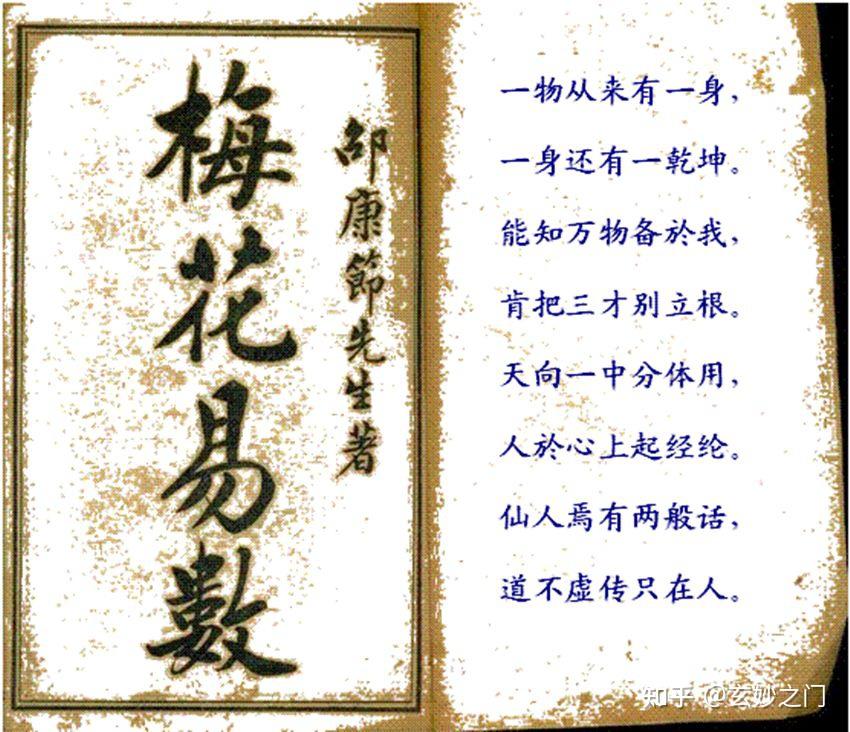 邵康節先生著
梅花易數
一物从来有一身，
一身还有一乾坤。
能知万物备於我，
肯把三才别立根。
天向一中分体用，
人於心上起经纶。
仙人焉有两般话，
道不虚传只在人。
知乎 @玄妙之门